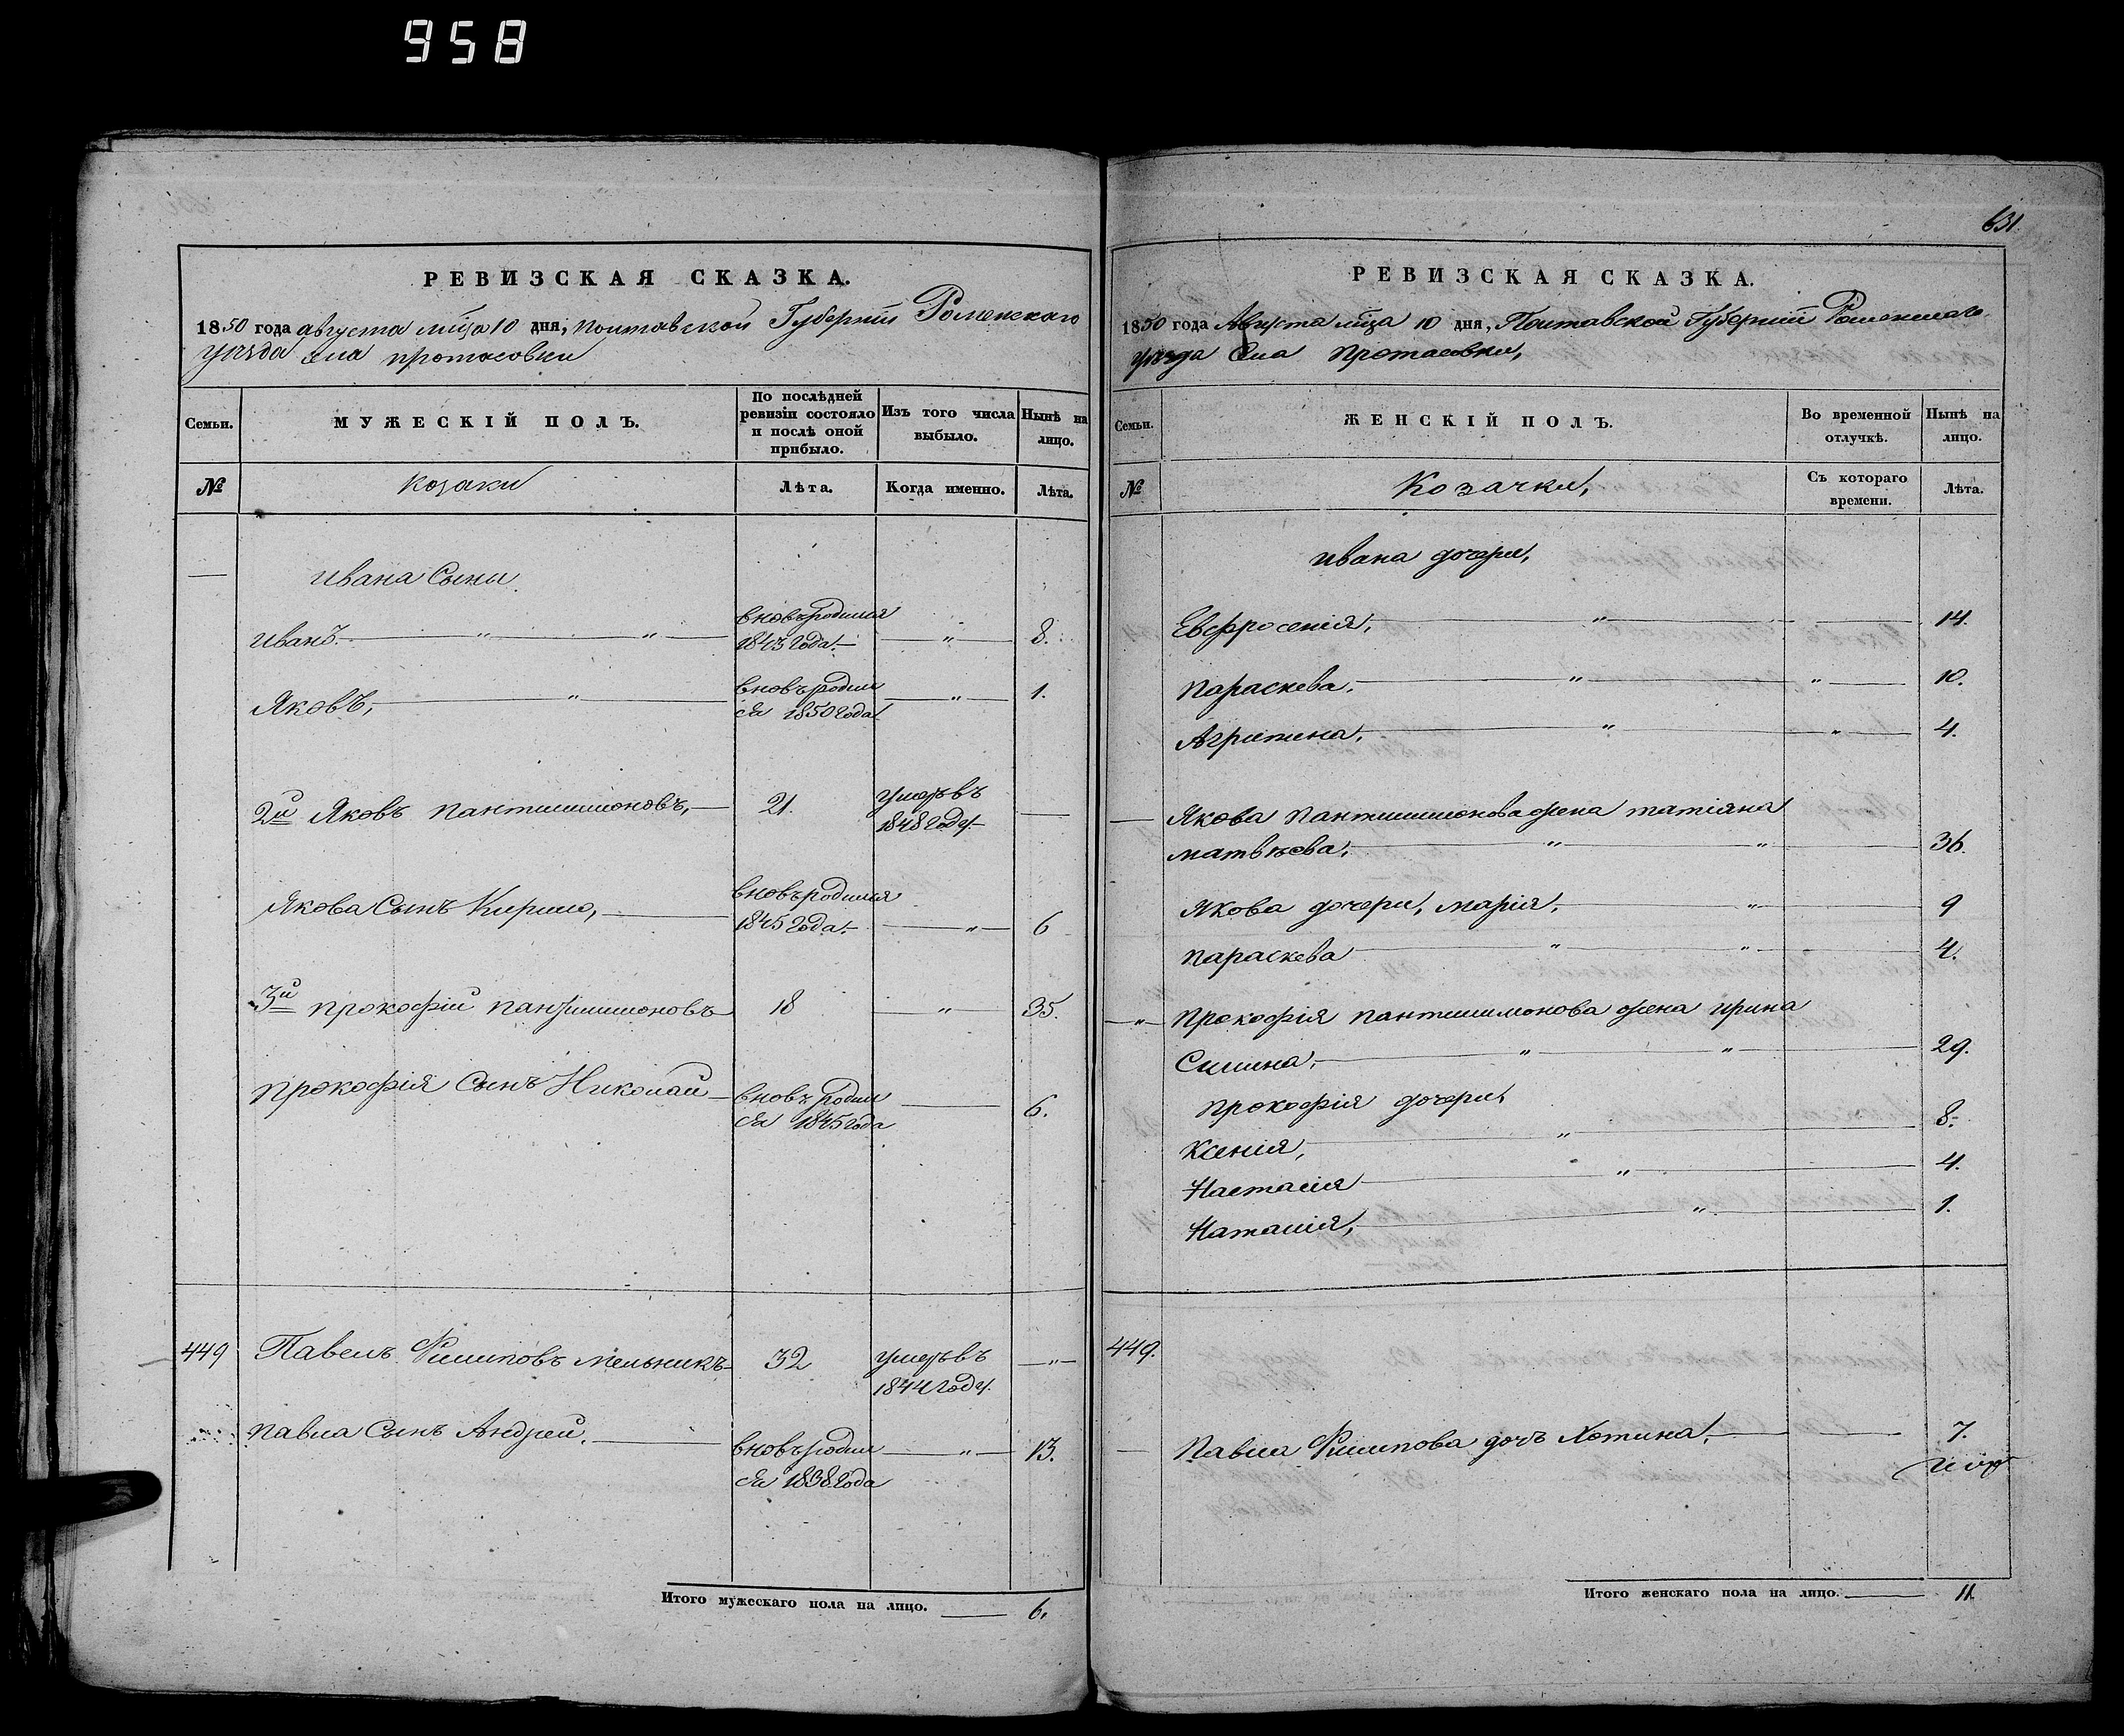 958
РЕВИЗСКАЯ СКАЗКА.
1850 года августа мца 10 дня, полтавской Губернии Роменскаго
уезда села протасовки
Семьи.
МУЖЕСКІЙ ПОЛЪ.
По послѣдней ревизіи состояло и послѣ оной прибыло.
Изъ того числа выбыло.
Нынѣ на лицо.
№
козаки
Лѣта.
Когда именно.
Лѣта.
— Ивана Сыны
Иванъ — " — " — вновьродился
1843 года. — " — 8.
Яковъ, — " — вновьродил
ся 1850 года. — " — 1.
2й Яковъ пантилимоновъ, — 21. умеръ въ
1848 году. —
Якова Сынъ Кирило, — вновьродился
1845 года. — " — 6
3й прокофій пантилимоновъ 18 — " — 35.
прокофія Сынъ Николай — вновь родил
ся 1845 года — 6.
449 Павелъ Филиповъ Мельникъ 32 умеръ въ — " —
1844 году.
павла Сынъ Андрей. — вновьродил — " — 13.
ся 1838 года
Итого мужескаго пола на лицо. — 6.
631.
РЕВИЗСКАЯ СКАЗКА.
1850 года Августа мца 10 дня, Полтавской Губерніи Роменскаго
уѣзда Села Протасовки,
Семьи.
ЖЕНСКІЙ ПОЛЪ.
Во временной отлучкѣ.
Нынѣ на лицо.
№
Козачки,
Съ котораго времени.
Лѣта.
ивана дочери,
Евфросенія, — " — 14.
параскева. — " — " — 10.
Агрипина, — " — " — 4.
— Якова пантилимонова жена татіяна
матвѣева, — " — " — 36.
якова дочери, марія, — " — 9
параскева — " — " — 4.
— " — Прокофія пантилимонова жена ирина
Силина, — " — " — 29.
прокофія дочери,
Ксенія, — " — 8.
Настасія — " — 4.
Наталія, — " — 1.
449.
— Павла Филипова дочь Хотина, — 7.
Итого женскаго пола на лицо. — 11.